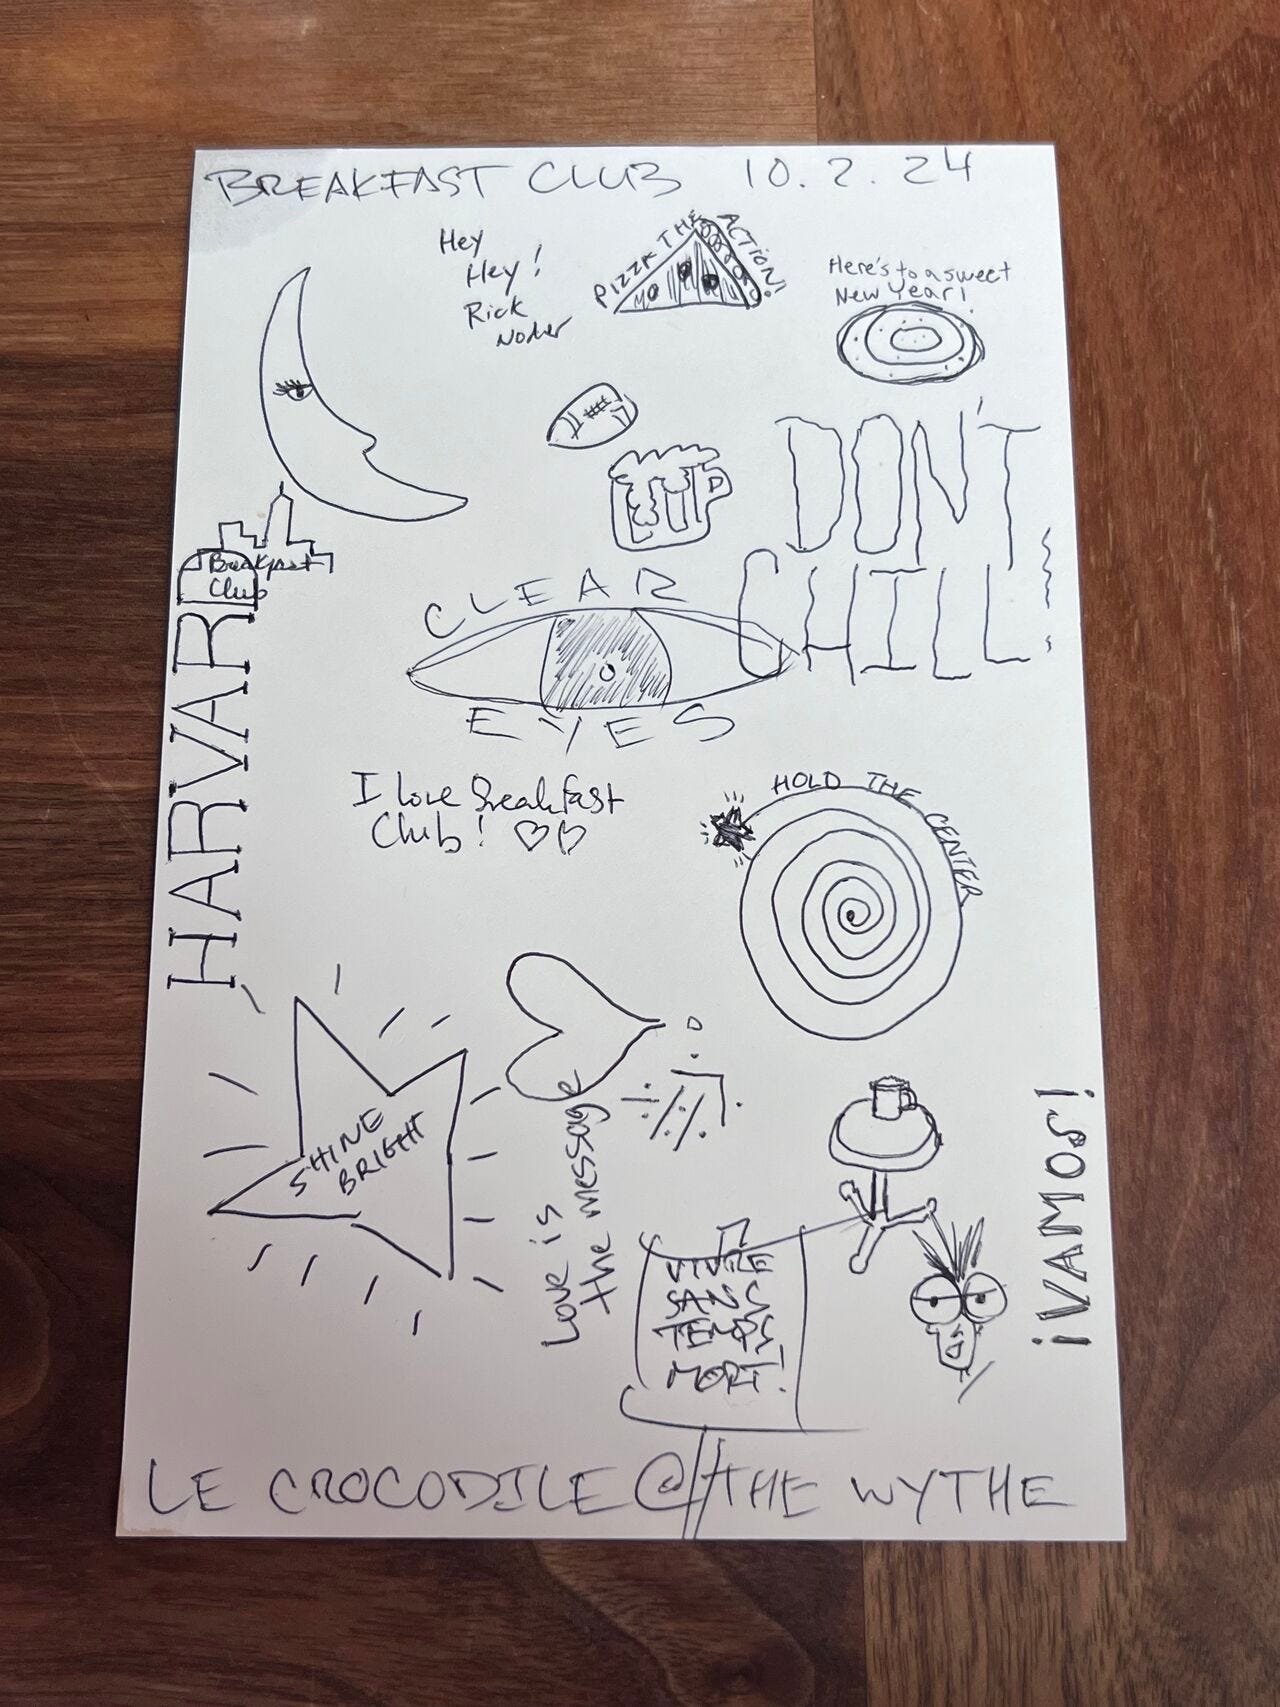 BREAKFAST CLUB 10.2.24
Hey
Hey!
Rick
PIZZA THE ACTION!
Here's to a sweet
New Year!
DON'T
CHILL!
Breakfast
Club
HARVARD
CLEAR
EYES
I love Breakfast
Club!
HOLD THE CENTER
SHINE
BRIGHT
Love is
the message
VIVRE
SANS
TEMPS
MORT!
¡VAMOS!
LE CROCODILE @ THE WYTHE